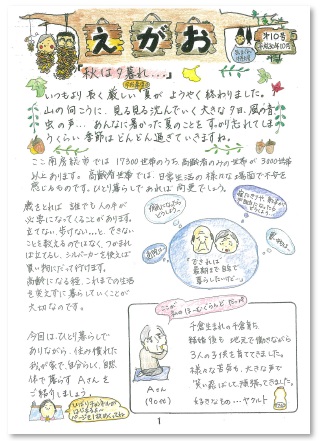 えがお
第10号
平成30年10月
「秋は夕暮れ...」
いつもより長く厳しい夏が ようやく終わりました。
山の向こうに、見る見る沈んでいく大きな夕日、風の音
虫の声...あんなに暑かった夏のことを すっかり忘れてしま
うくらい 季節はどんどん過ぎていきますね。
ここ南房総市では 17300世帯のうち、高齢者のみの世帯が 3000世帯
以上あります。高齢者世帯では、日常生活の様々な場面で不安を
感じるものです。ひとり暮らしであれば 尚更でしょう。
歳をとれば 誰でも人の手が
必要になってくることがあります。
立てない、歩けない...と、できない
ことを数えるのではなく、つかまれ
ば立てるし、シルバーカーを使えば
買い物にだって行けます。
高齢になる程、これまでの生活
を変えずに暮らしていくことが
大切なのです。
できれば
最期まで自宅で
暮らしたいけど...
今回は、ひとり暮らしで
ありながら、住み慣れた
我が家で、自分らしく、自然
体で暮らす Aさんを
ご紹介しましょう。
Aさん
(90代)
千倉生まれの千倉育ち
結婚後も 地元で働きながら
3人の子供を育ててきました。
様々な苦労も、大きな声で
笑い飛ばして、頑張ってきました。
好きなもの...ヤクルト
1